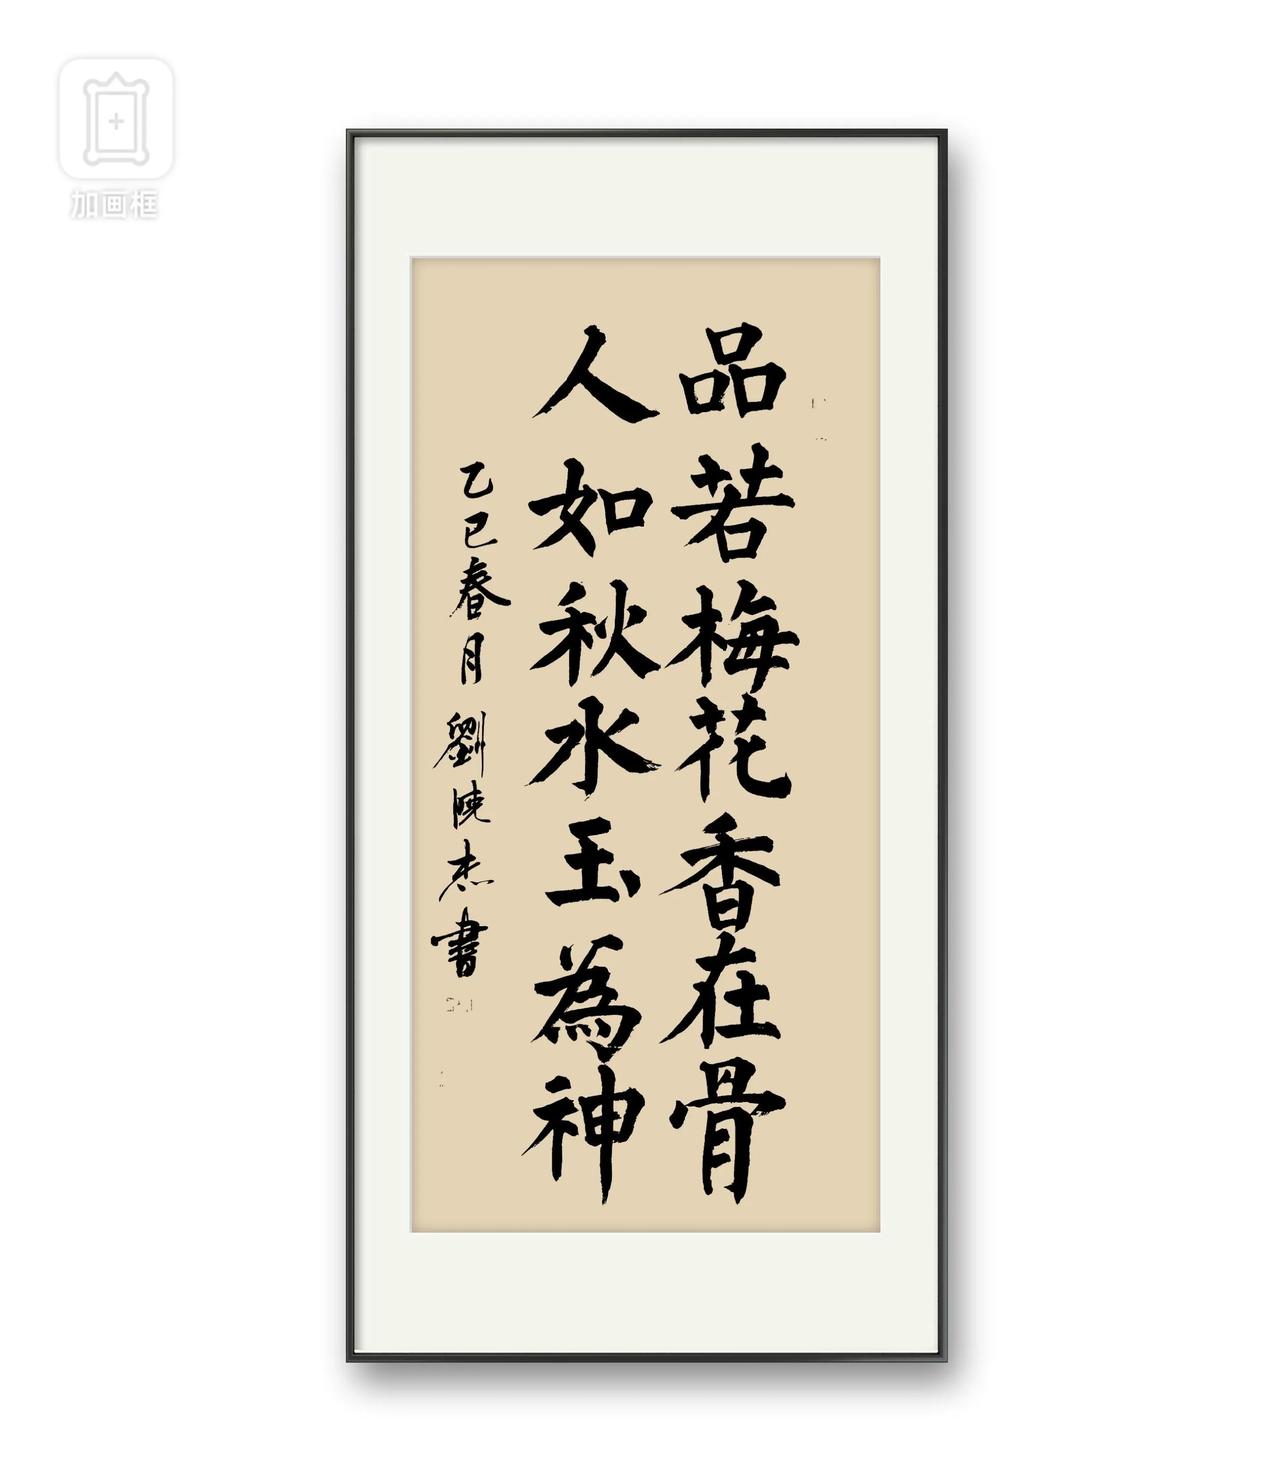 品若梅花香在骨
人如秋水玉為神
乙巳春月劉陖杰書
加画框